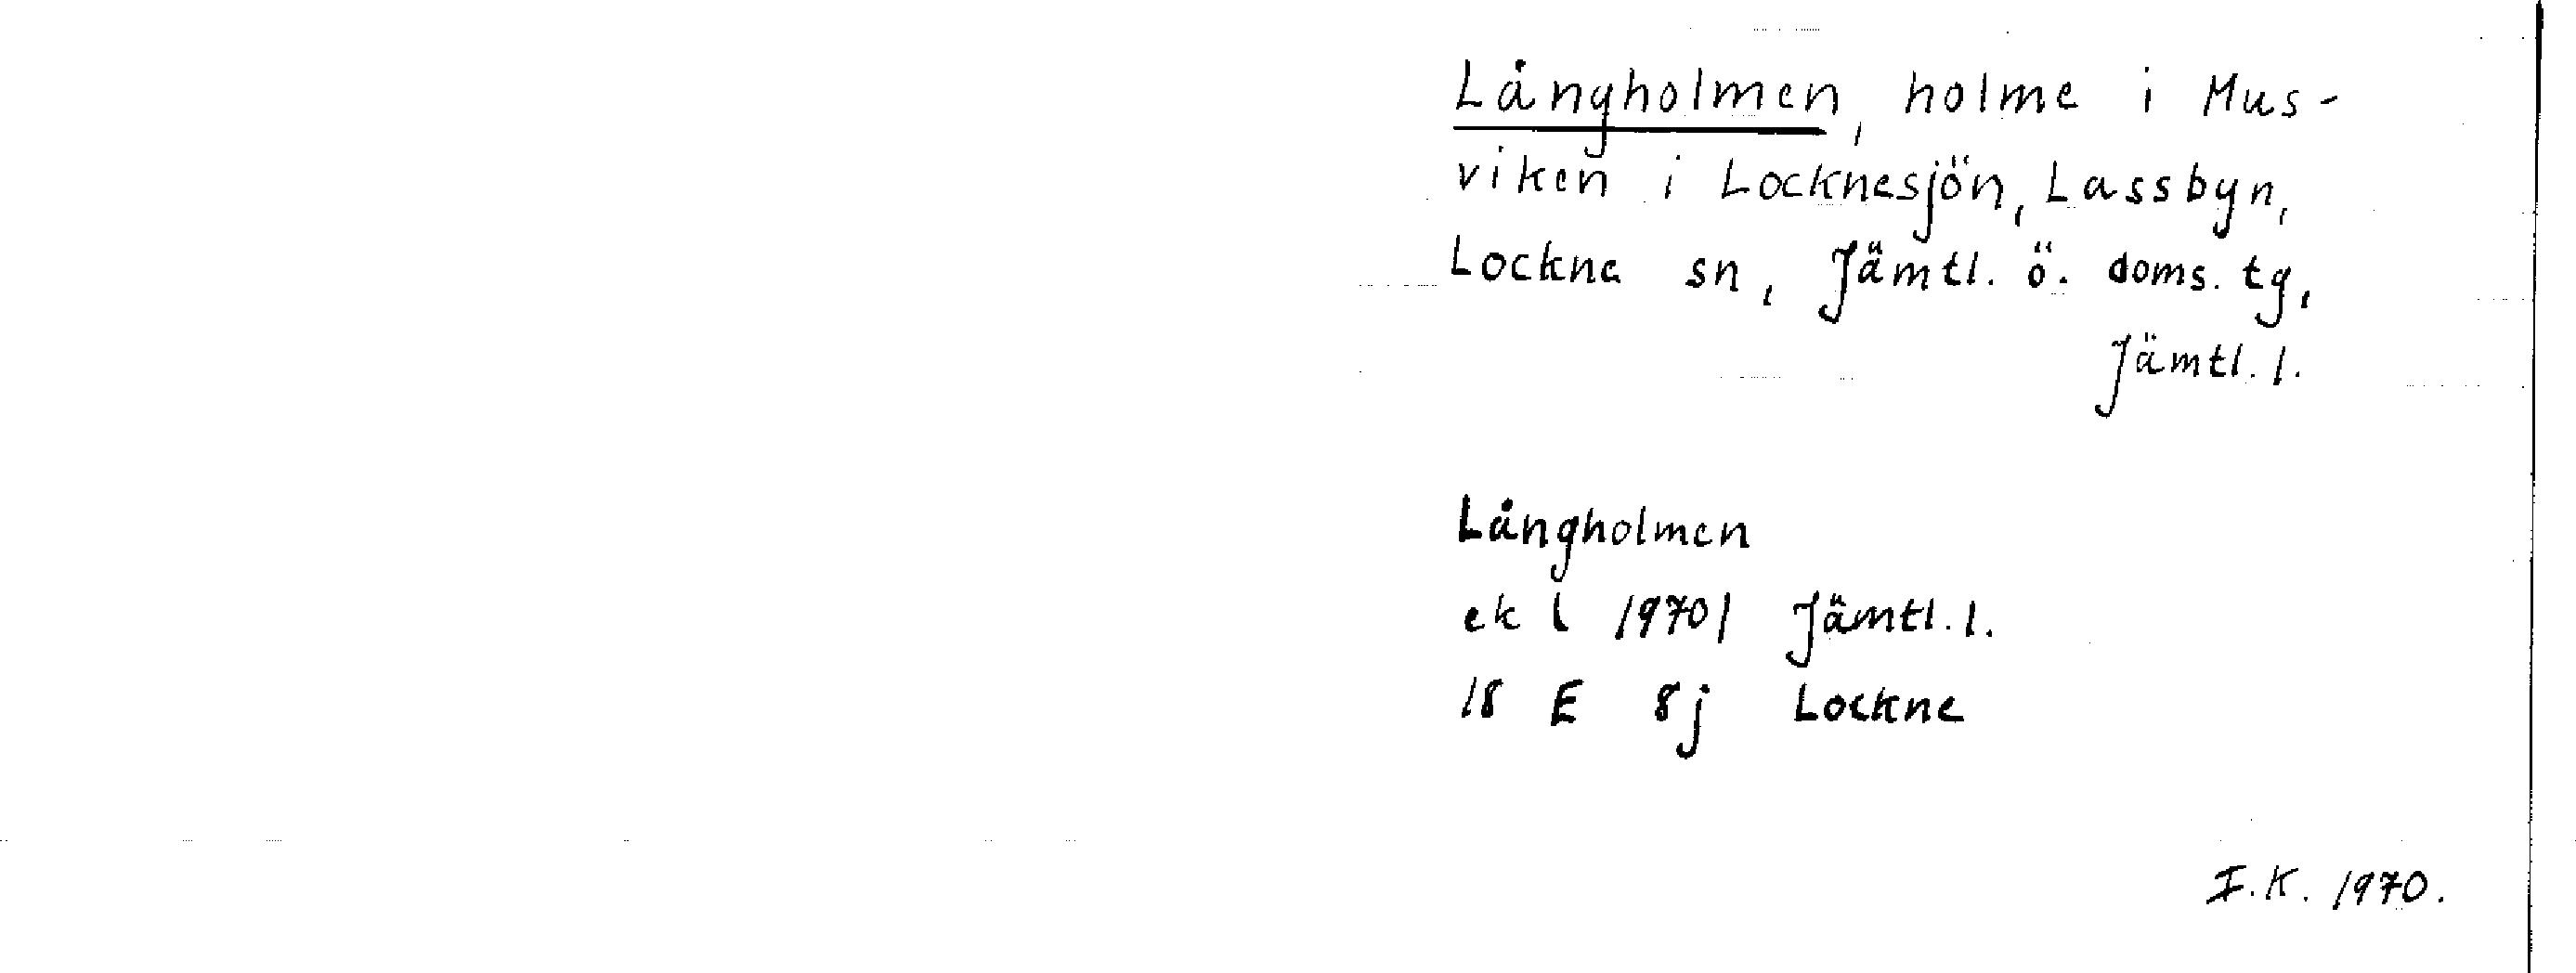 Långholmen, holme i Mus-
viken i Locknesjön, Lassbyn,
Lockne sn, Jämtl. ö. doms. tg,
Jämtl. l.
Långholmen
ek ( 1970) Jämtl. l.
18 E 8j Lockne
I.K. 1970.